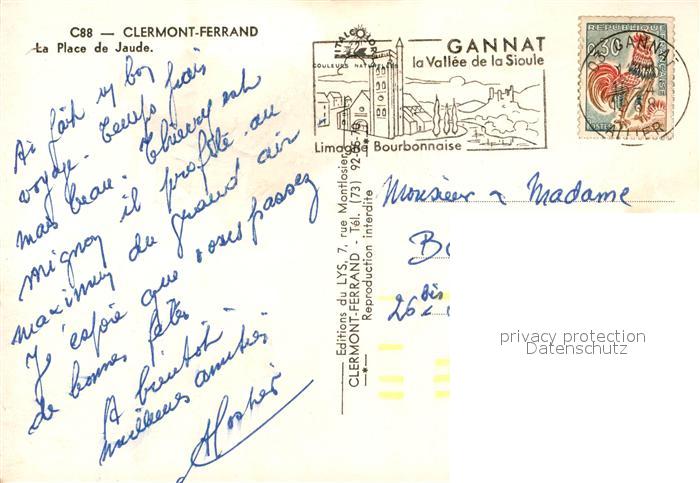 C88 — CLERMONT-FERRAND
La Place de Jaude.
Ai fait un bon
voyage. Temps frais
mais beau. Thierry est
mignon il profite au
maximum du grand air
J'espère que vous passez
de bonnes fêtes
A bientôt
meilleures amitiés
Editions du LYS, 7, rue Montlosier
CLERMONT-FERRAND - Tél. (73) 92-86-79
Reproduction interdite
ITALCOLOR
COULEURS NATURELLES
GANNAT
la Vallée de la Sioule
Limagne Bourbonnaise
REPUBLIQUE FRANÇAISE
0,30
POSTES
03 GANNAT
ALLIER
Monsieur & Madame
26 Bis
privacy protection
Datenschutz